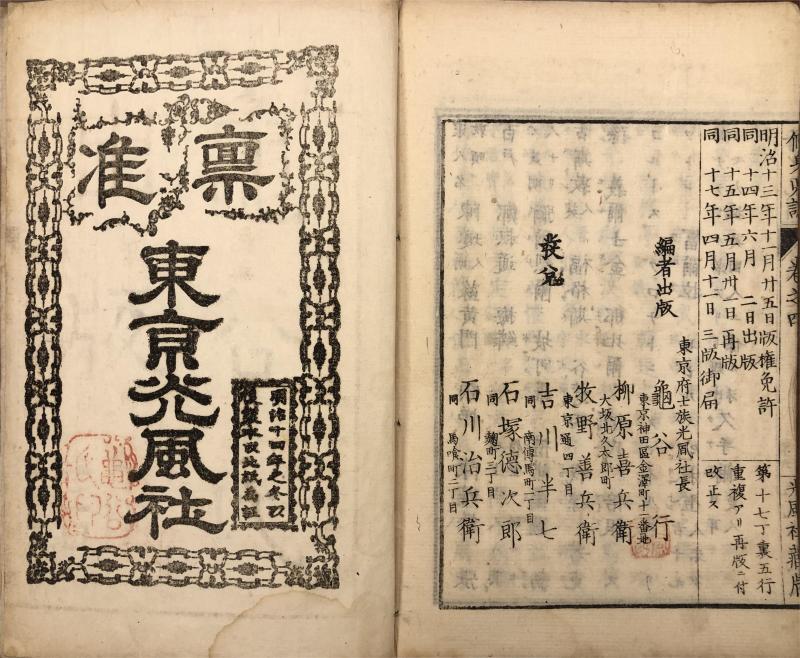 修身兒訓 卷之四 光風社藏版
明治十三年十二月廿五日版權免許
同 十四年六月 二日出版
同 十五年五月卅一日再版
同 十七年四月十一日三版御届
第十七丁裏五行
重複アリ再版ニ付
改正ス
編者出版
東京府士族光風社長
龜谷 行
東京神田區金澤町十一番地
發兌
柳原喜兵衛
大坂北久太郎町
牧野善兵衛
東京通四丁目
吉川半七
同 南傳馬町一丁目
石塚德次郎
同 麹町三丁目
石川治兵衛
同 馬喰町二丁目
稟准
東京光風社
明治十四年之冬以
後製本改此紙為証